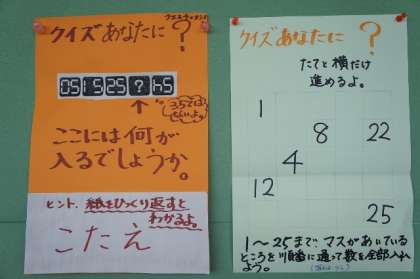 クイズあなたに?
051525?h5
35では
ないよ。
ここには何が
入るでしょうか。
ヒント、紙をひっくり返すと
わかるよ。
こたえ
クイズあなたに?
たてと横だけ
進めるよ。
1
8 22
4
12
25
1～25まで、マスがあいている
ところを順番に通って数を全部入れ
よう。